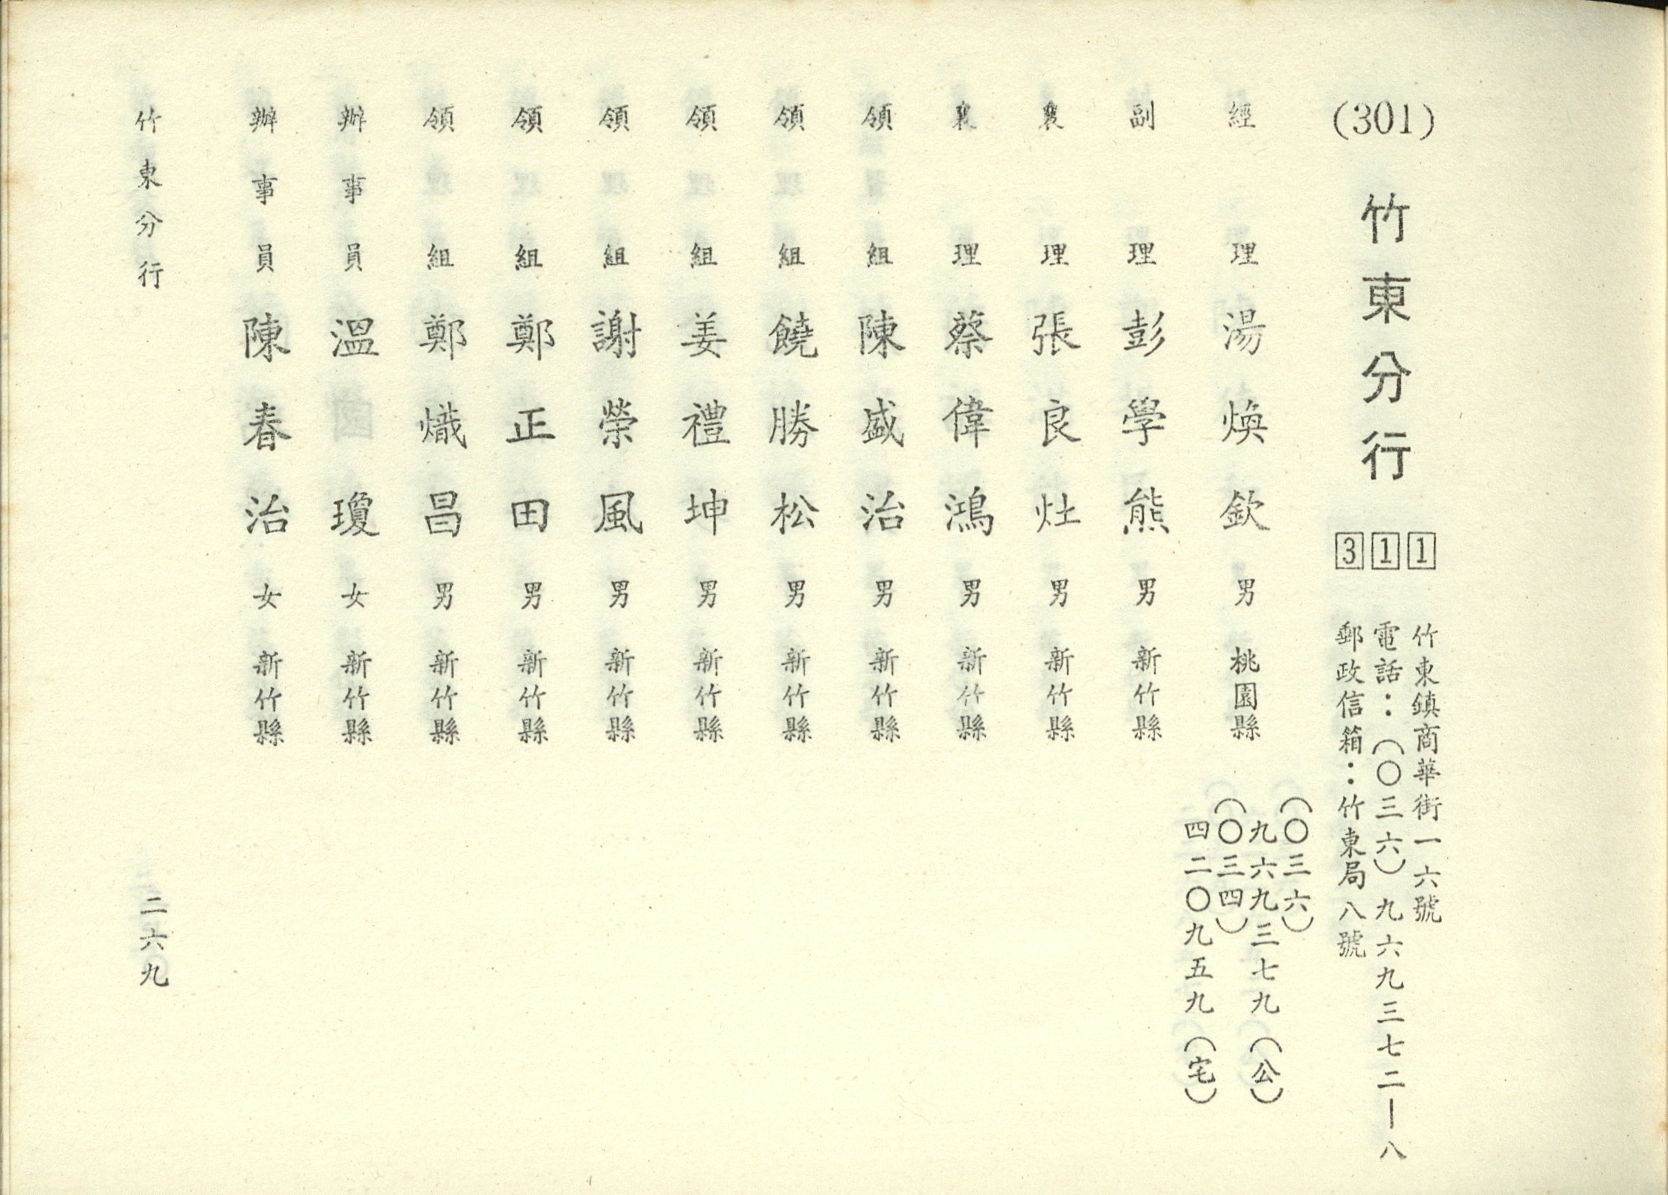 (301) 竹東分行 311
竹東鎮商華街一六號
電話：（〇三六）九六九三七二—八
郵政信箱：竹東局八號
經理 湯煥欽 男 桃園縣
（〇三六）
九六九三七九（公）
（〇三四）
四二〇九五九（宅）
副理 彭學熊 男 新竹縣
襄理 張良灶 男 新竹縣
襄理 蔡偉鴻 男 新竹縣
領組 陳盛治 男 新竹縣
領組 饒勝松 男 新竹縣
領組 姜禮坤 男 新竹縣
領組 謝榮風 男 新竹縣
領組 鄭正田 男 新竹縣
領組 鄭熾昌 男 新竹縣
辦事員 溫瓊 女 新竹縣
辦事員 陳春治 女 新竹縣
竹東分行
二六九